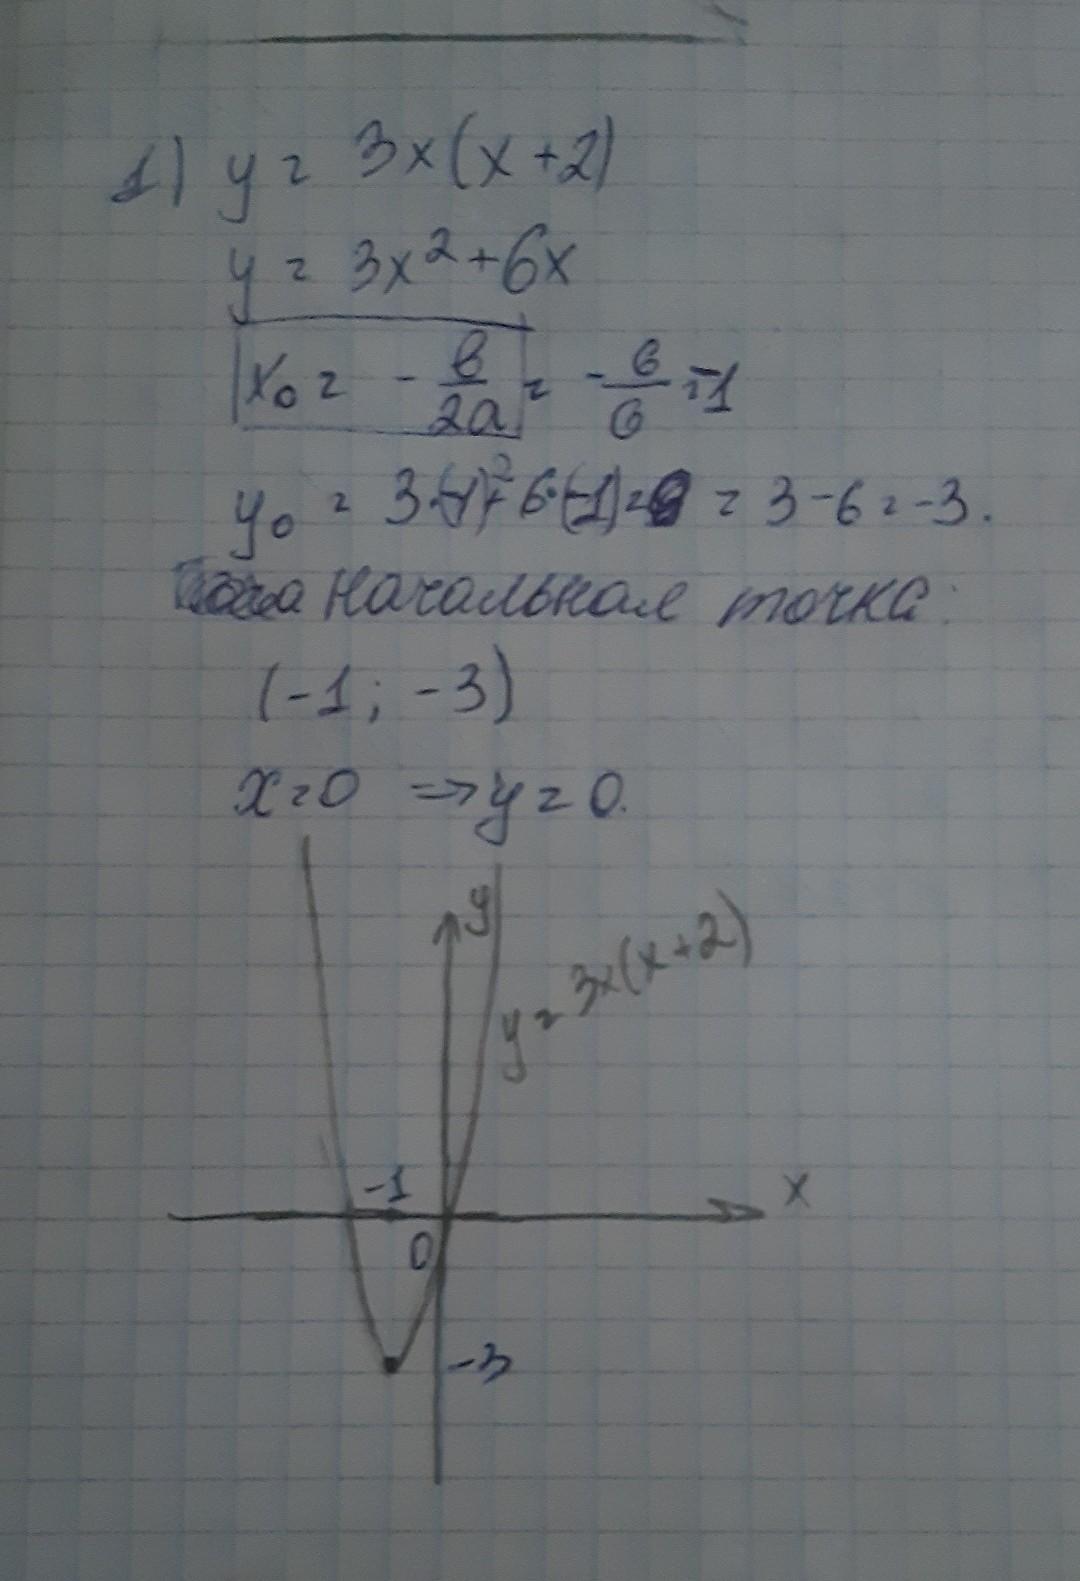 1) y = 3x(x+2)
y = 3x² + 6x
x₀ = - в/2a = - 6/6 = -1
y₀ = 3·(-1)²+6·(-1)= = 3-6=-3.
начальная точка:
(-1; -3)
x=0 => y=0.
y
y=3x(x+2)
-1
x
0
-3